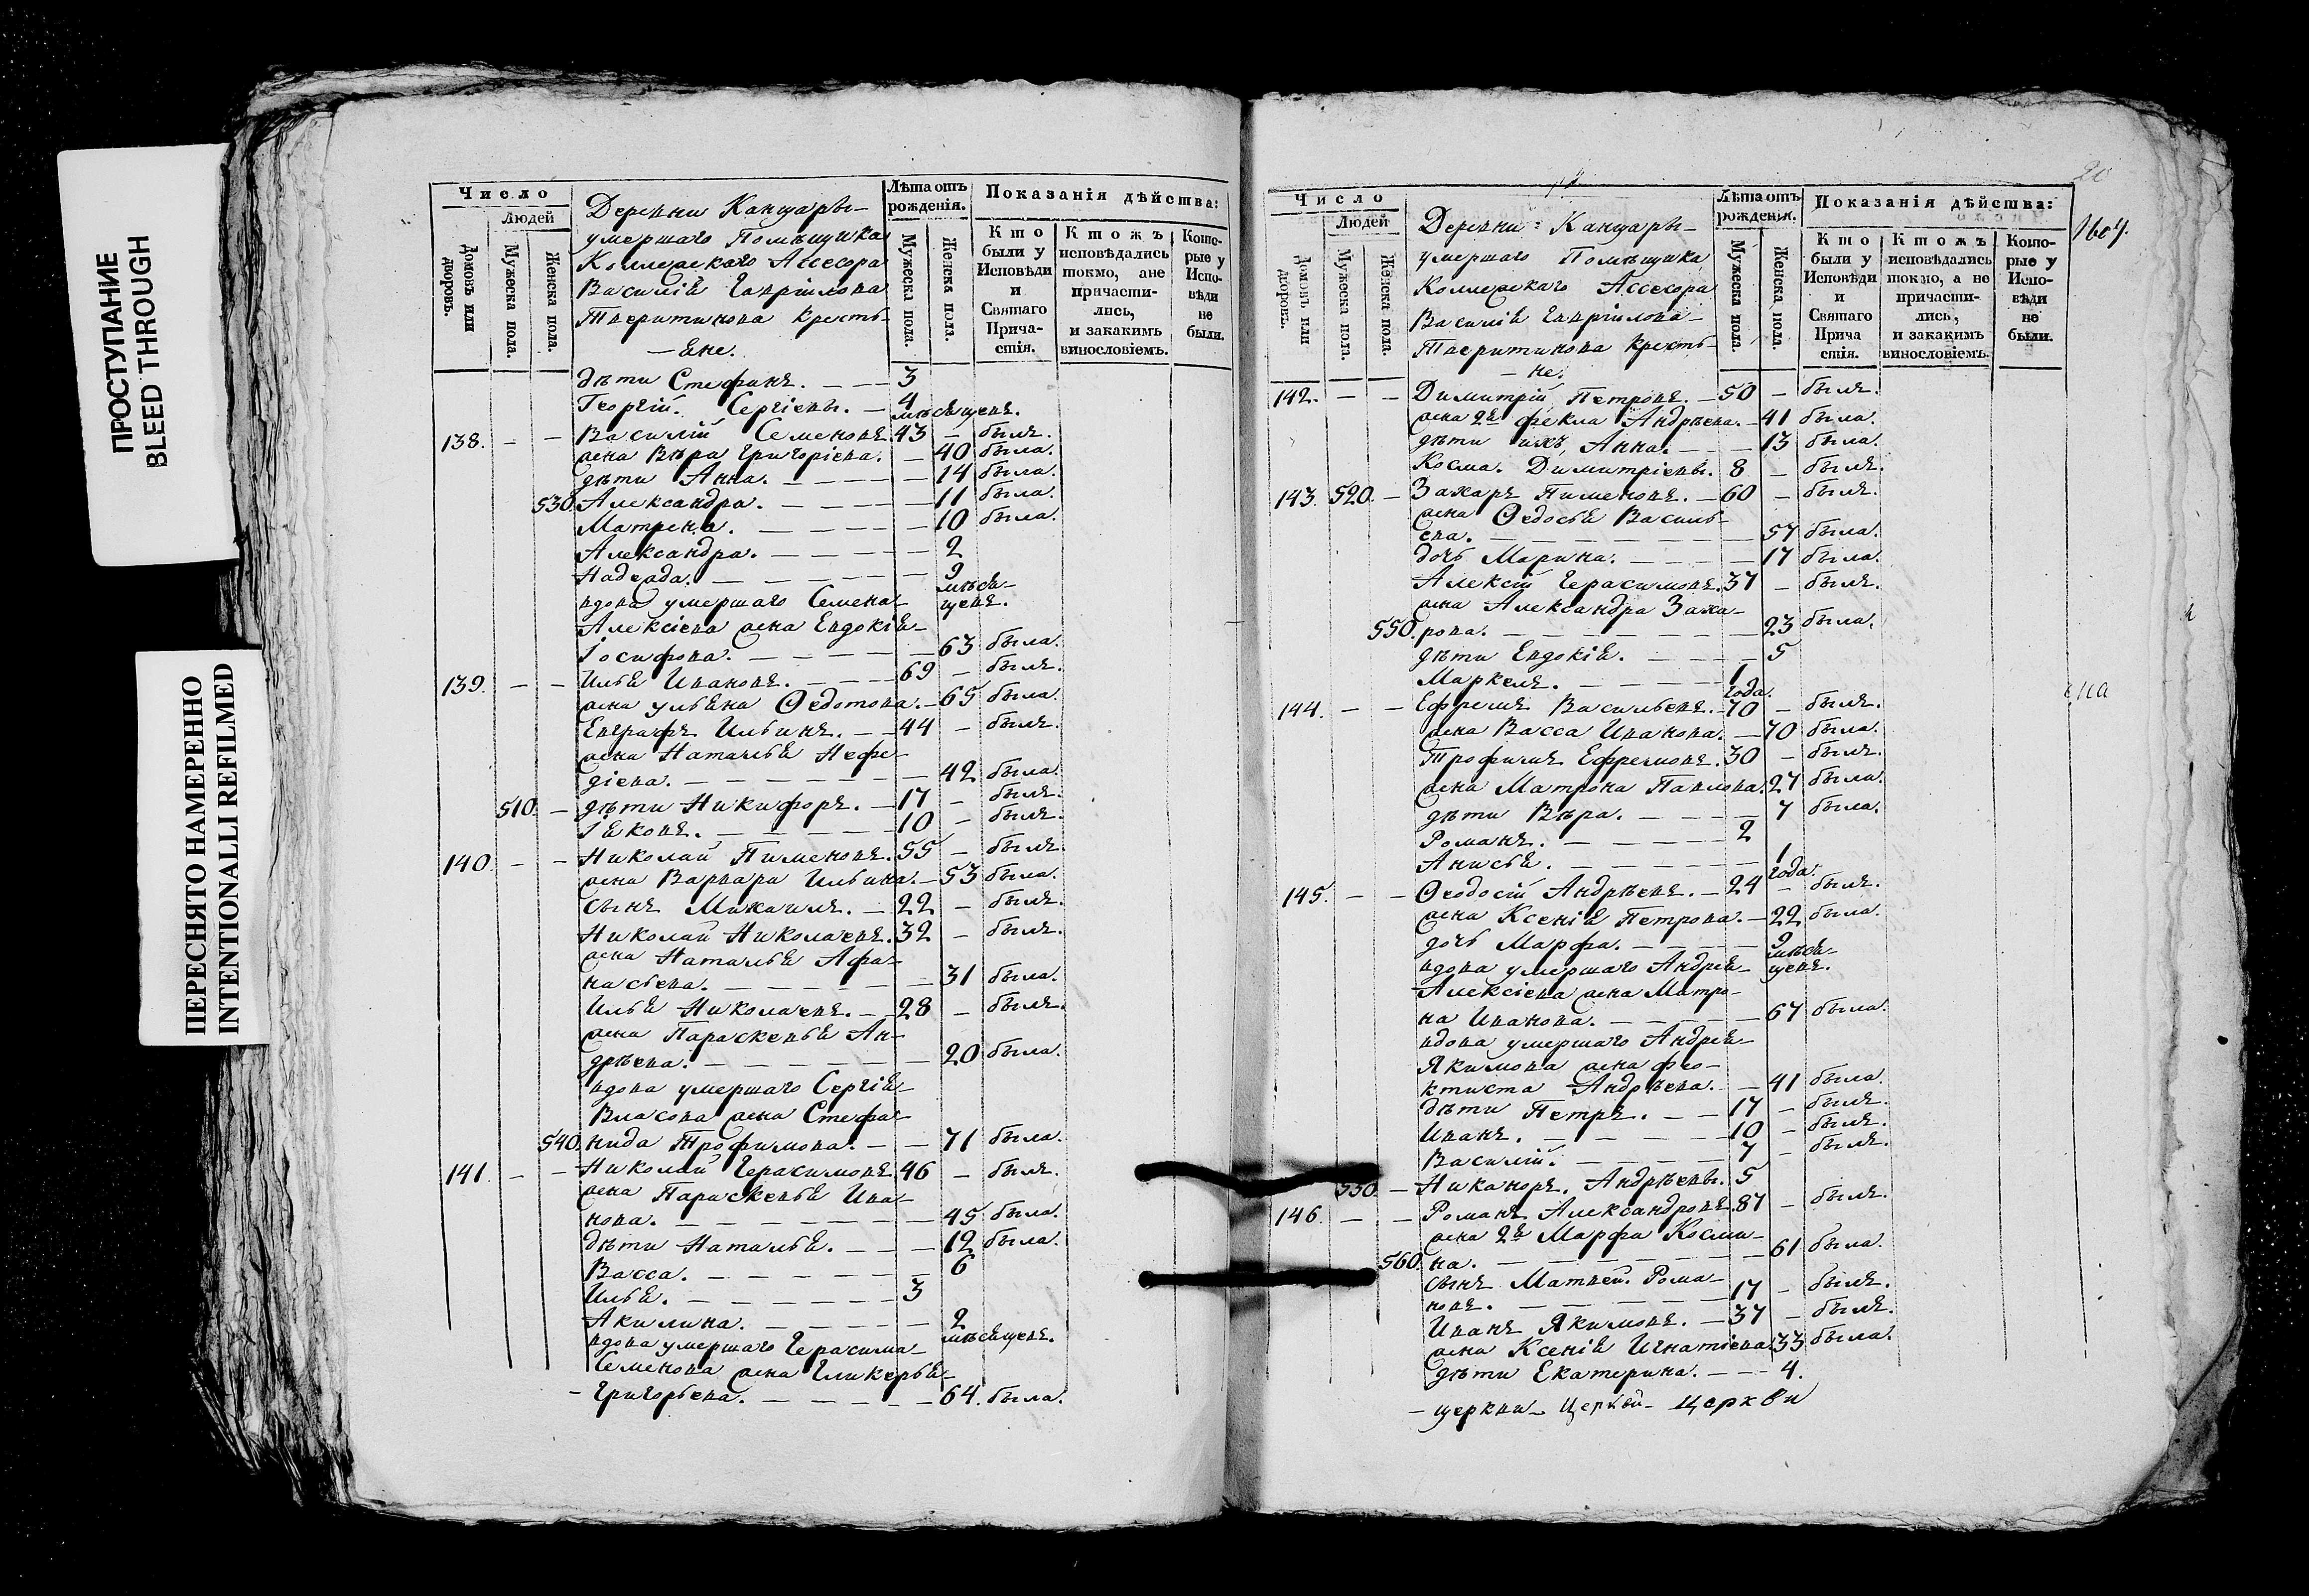 ПРОСТУПАНИЕ
BLEED THROUGH
ПЕРЕСНЯТО НАМЕРЕННО
INTENTIONALLI REFILMED
Число
Людей
Домовъ или дворовъ.
Мужеска пола.
Женска пола.
Деревни Канцары
умершаго Помѣщика
Коллежскаго Ассесора
Василія Гавріилова
Тверитинова кресть-
-яне.
Лѣта отъ рожденія.
Мужеска пола.
Женска пола.
Показанія дѣйства:
Кто были у Исповѣди и Святаго Прича-стія.
Ктожъ исповѣдались токмо, ане причасти-лись, и закакимъ винословіемъ.
Кото-рые у Испо-вѣди не были.
дѣти Стефанъ. 3
Георгій. Сергіевы. 4 мѣсяцевъ.
138. Василій Семеновъ 43 - былъ.
жена Вѣра Григоріева. - 40 была.
дѣти Анна. - 14 была.
530. Александра. - 11 была.
Матрена. - 10 была.
Александра. - 2
Надежда. - 9 мѣся-
вдова умершаго Семена цевъ.
Алексіева жена Евдокія
Іосифова. - 63 была.
139. Илья Ивановъ. 69 - былъ.
жена Ульяна Ѳедотова. - 65 была.
Евграфъ Ильинъ. 44 - былъ.
жена Наталья Мефо-
діева. - 42 была.
510. - дѣти Никифоръ. 17 - былъ.
Іяковъ. 10 - былъ.
140. Николай Пименовъ. 55 - былъ.
жена Варвара Ильина. - 53 была.
сынъ Михаилъ. 22 - былъ.
Николай Николаевъ. 32 - былъ.
жена Наталья Афа-
насьева. - 31 была.
Илья Николаевъ. 28 - былъ.
жена Параскевья Ан-
дрѣева. - 20 была.
вдова умершаго Сергія
Власова жена Стефа-
540. нида Трофимова. - 71 была.
141. Николай Герасимовъ 46 - былъ.
жена Параскевья Ива-
нова. - 45 была.
дѣти Наталья. - 12 была.
Васса. - 6
Илья. 3
Акилина. - 2 мѣсяцевъ.
вдова умершаго Герасима
Семенова жена Гликерья
- Григорьева. - 64. была.
20
1607.
Число
Людей
Домовъ или дворовъ.
Мужеска пола.
Женска пола.
Деревни: Канцары
умершаго Помѣщика
Коллежскаго Ассесора
Василія Гавріилова
Тверитинова кресть-
- не.
Лѣта отъ рожденія.
Мужеска пола.
Женска пола.
Показанія дѣйства:
Кто были у Исповѣди и Святаго Прича стія.
Ктожъ исповѣдались токмо, а не причасти-лись, и закакимъ винословіемъ.
Кото-рые у Испо-вѣди не были.
142. Димитрій Петровъ. 50 - былъ.
жена 2я Фекла Андрѣева. - 41 была.
дѣти ихъ, Анна. - 13 была.
Косма. Димитріевы. 8 - былъ.
143. 520. - Захаръ Пименовъ. 60 - былъ.
жена Ѳедосья Василь-
ева. - 57 была.
дочь Марина. - 17 была.
Алексій Герасимовъ. 37 - былъ.
жена Александра Заха-
550. рова. - 23 была.
дѣти Евдокія. - 5
Маркелъ. 1 года.
144. Ефремъ Васильевъ. 70 - былъ.
жена Васса Иванова. - 70 была.
Трофимъ Ефремовъ. 30 - былъ.
жена Матрона Павлова. 27 была.
дѣти Вѣра. - 7 была.
Романъ. 2
Анисья. - 1 года.
145. Ѳеодосій Андрѣевъ. 24 - былъ.
жена Ксенія Петрова. - 22 была.
дочь Марфа. - 9 мѣся-
вдова умершаго Андрея цевъ.
Алексіева жена Матро-
на Иванова. - 67 была.
вдова умершаго Андрея
Якимова жена Фео-
ктиста Андрѣева. - 41 была.
дѣти Петръ. 17 - былъ.
Иванъ. 10 - былъ.
Василій. 7 - былъ.
530. - Никаноръ. Андрѣевы. 5
146. Романъ Александровъ. 87 - былъ.
жена 2я Марфа Косми-
560. на. - 61 была.
сынъ Матвей. Рома-
новъ. 17 - былъ.
Иванъ Якимовъ. 37 - былъ.
жена Ксенія Игнатіева 33 была.
дѣти Екатерина. - 4.
- церкви - Церкви - Церкви